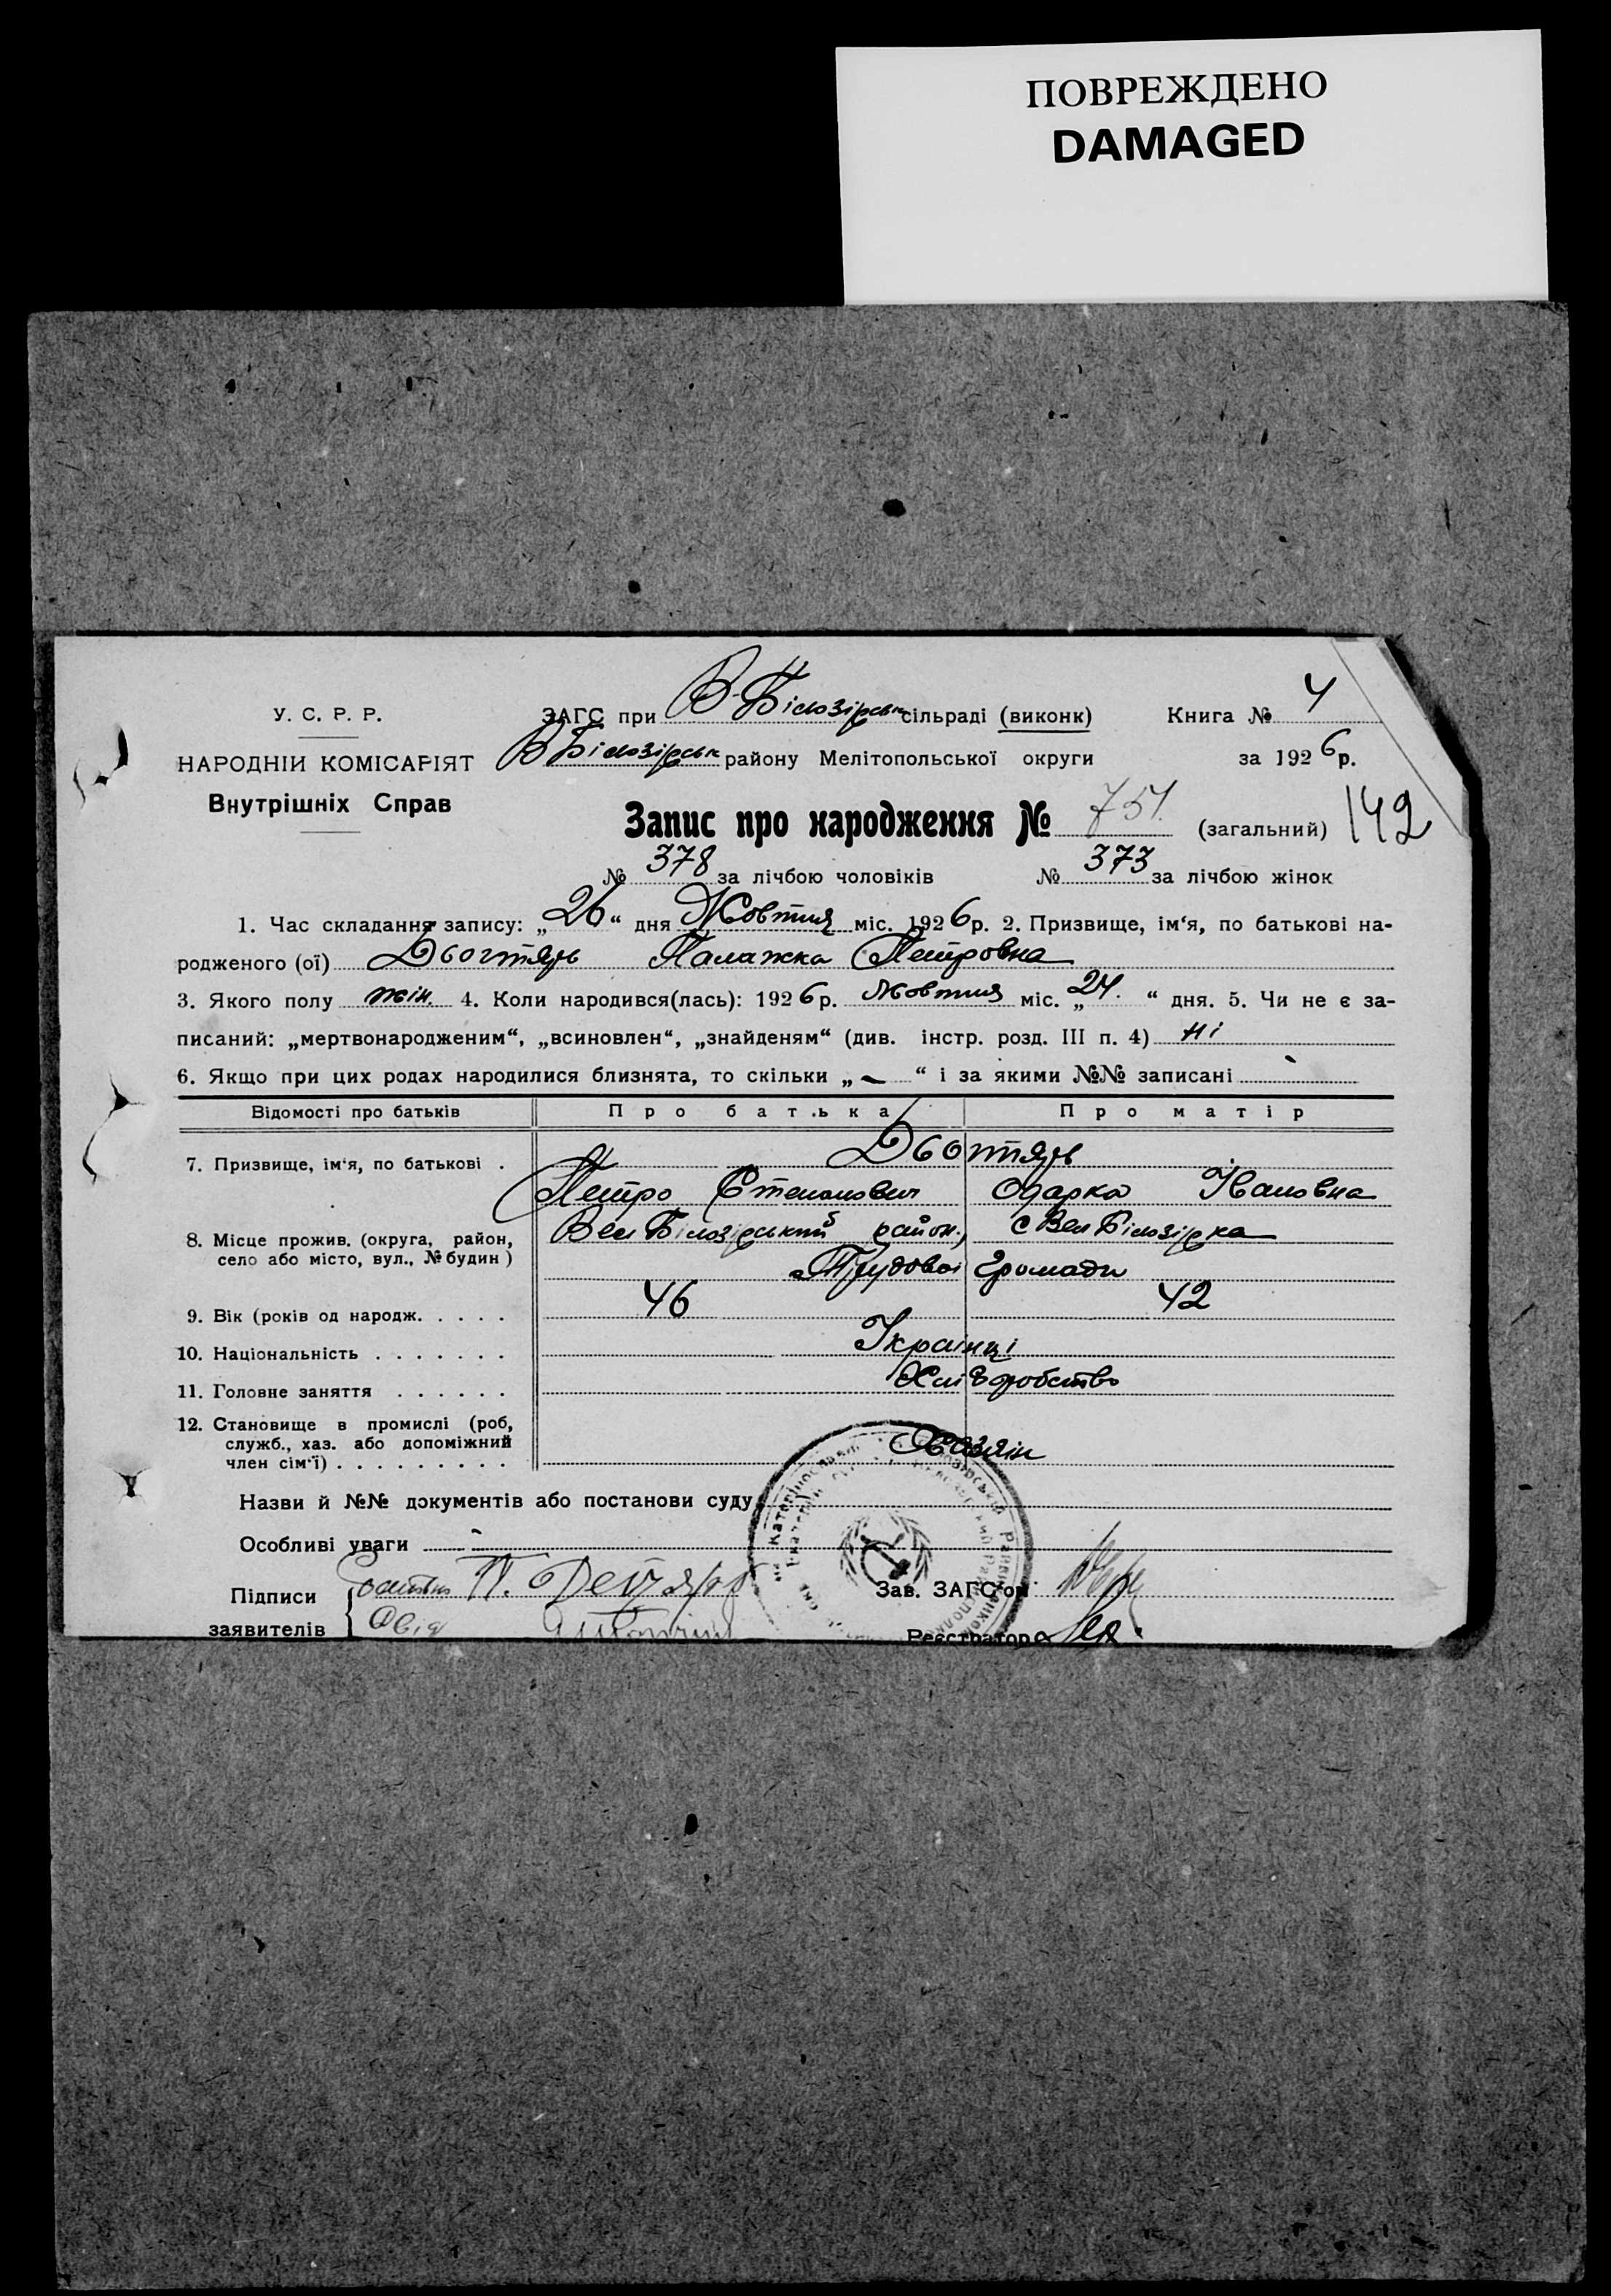 ПОВРЕЖДЕНО
DAMAGED
У. С. Р. Р.
НАРОДНІЙ КОМІСАРІЯТ
Внутрішніх Справ
ЗАГС при В-Білозірськ сільраді (виконк)
В Білозірськ району Мелітопольської округи
Книга № 4
за 1926 р.
Запис про народження № 751. (загальний) 142
№ 378 за лічбою чоловіків № 373 за лічбою жінок
1. Час складання запису: „26“ дня Жовтня міс. 1926 р. 2. Призвище, ім‘я, по батькові на-
родженого (ої) Дьогтярь Палажка Петровна
3. Якого полу жін. 4. Коли народився(лась): 1926 р. Жовтня міс. „24.“ дня. 5. Чи не є за-
писаний: „мертвонародженим“, „всиновлен“, „знайденям“ (див. інстр. розд. III п. 4) ні
6. Якщо при цих родах народилися близнята, то скільки „—“ і за якими №№ записані
Відомості про батьків Про батька Про матір
7. Призвище, ім‘я, по батькові . Дьогтярь
Петро Степанович Одарка Івановна
8. Місце прожив. (округа, район, Вел Білозірський район, с Вел Білозірка
село або місто, вул., № будин)
Трудової Громади
9. Вік (років од народж. . . . . 46 42
10. Національність . . . . . . . Українці
11. Головне заняття . . . . . . Хліборобство
12. Становище в промислі (роб,
служб., хаз. або допоміжний
член сім‘ї) . . . . . . . . . Хазяїн
Назви й №№ документів або постанови суду
Особливі уваги -
Підписи П. Дейтярь Зав. ЗАГС‘ом
заявителів Реєстратор